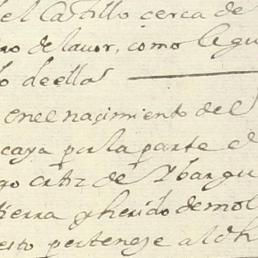 del Castillo cerca de
de lavor, como se
de ellas
en el nacimiento del
caya por la parte
ortiz de Ybargu
tierra y herido de mol
esto pertenese al dh